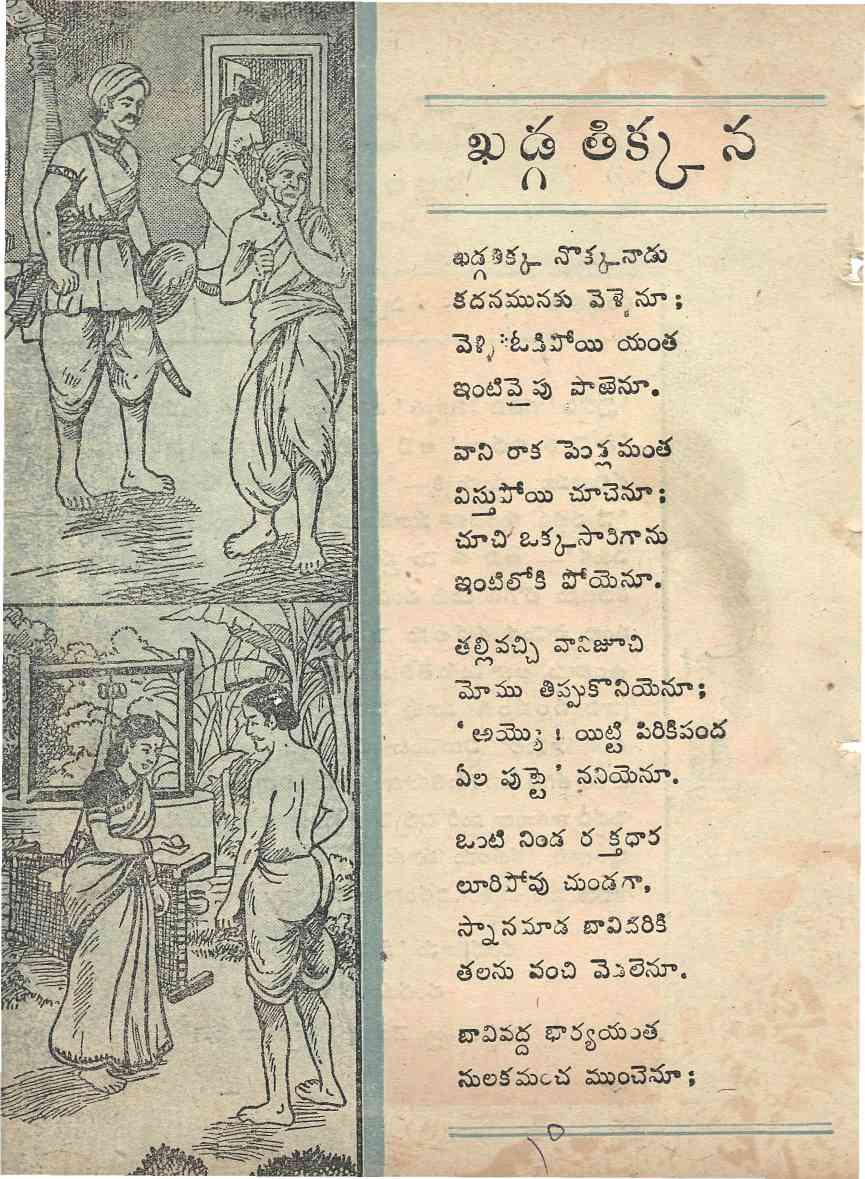 ఖడ్గ తిక్కన
ఖడ్గతిక్క నొక్కనాడు
కదనమునకు వెళ్ళెనూ ;
వెళ్ళి ఓడిపోయి యంత
ఇంటివైపు పాఱెనూ.
వాని రాక పెండ్లమంత
విస్తుపోయి చూచెనూ ;
చూచి ఒక్కసారిగాను
ఇంటిలోకి పోయెనూ.
తల్లివచ్చి వానిజూచి
మోము తిప్పుకొనియెనూ ;
‘అయ్యొ ! యిట్టి పిరికిపంద
ఏల పుట్టె’ ననియెనూ.
ఒంటి నిండ రక్తధార
లూరిపోవు చుండగా,
స్నానమాడ బావిదరికి
తలను వంచి వెడలెనూ.
బావివద్ద భార్యయంత
నులకమంచ ముంచెనూ ;